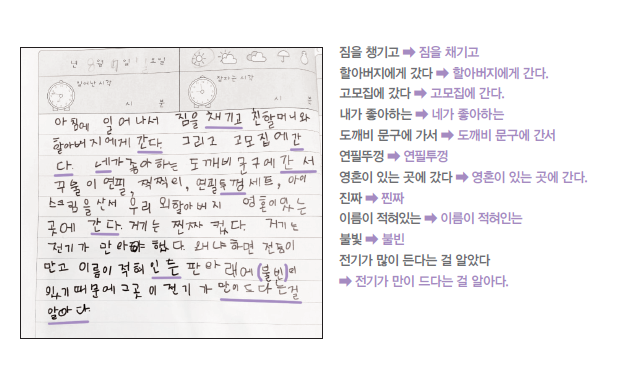 년 월 일 요일
일어난 시각
잠자는 시각
시 분
시
아침에 일어나서 짐을 채기고 친할머니와
할아버지에게 간다. 그리고 고모집에 간
다. 네가 좋아하는 도깨비문구에 간 서
꾸슬이 연필, 쩍쩍이, 연필투껑세트, 아이
스크림을 산서 우리 외할아버지 영혼이있는
곳에 간다. 거기는 찐짜 컸다. 거기는
전기가 만아야 했다. 왜냐하면 전등이
만고 이름이 적혀인는 판 마
에 (불빈)이
있기때문에 그곳이 전기가 만이드다는걸
알아다.
짐을 챙기고 ➡ 짐을 채기고
할아버지에게 갔다 ➡ 할아버지에게 간다.
고모집에 갔다 ➡ 고모집에 간다.
내가 좋아하는 ➡ 네가 좋아하는
도깨비 문구에 가서 ➡ 도깨비 문구에 간서
연필뚜껑 ➡ 연필투껑
영혼이 있는 곳에 갔다 ➡ 영혼이 있는 곳에 간다.
진짜 ➡ 찐짜
이름이 적혀있는 ➡ 이름이 적혀인는
불빛 ➡ 불빈
전기가 많이 든다는 걸 알았다
➡ 전기가 만이 드다는 걸 알아다.